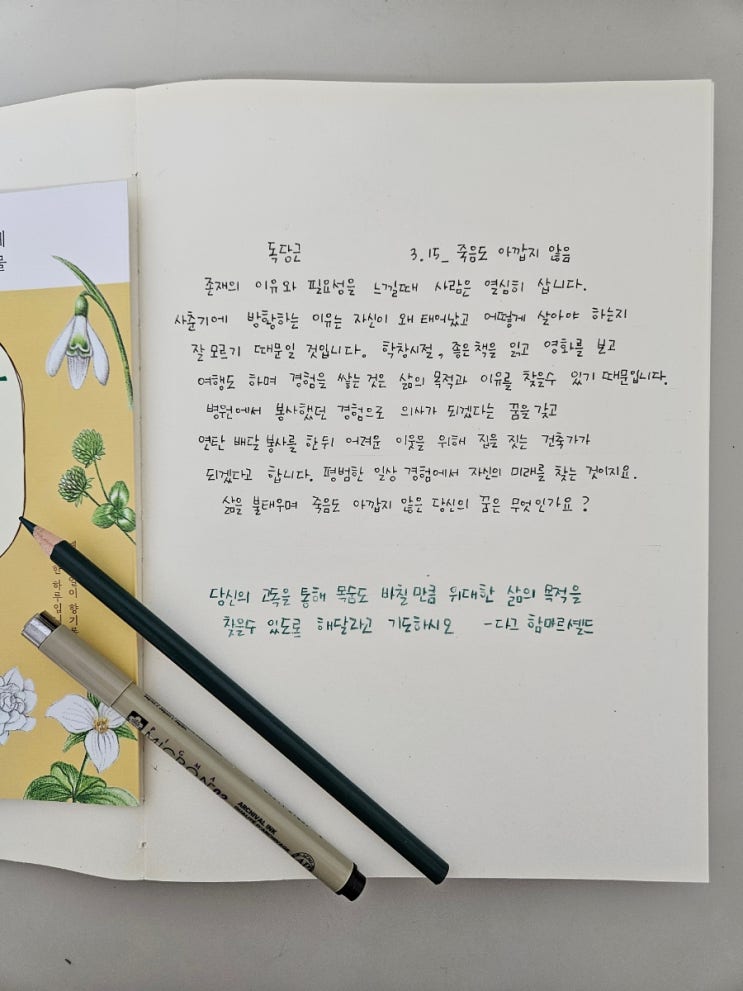 독당근 3.15_ 죽음도 아깝지 않음
존재의 이유와 필요성을 느낄때 사람은 열심히 삽니다.
사춘기에 방황하는 이유는 자신이 왜 태어났고 어떻게 살아야 하는지
잘 모르기 때문일 것입니다. 학창시절, 좋은 책을 읽고 영화를 보고
여행도 하며 경험을 쌓는 것은 삶의 목적과 이유를 찾을수 있기 때문입니다.
병원에서 봉사했던 경험으로 의사가 되겠다는 꿈을 갖고
연탄 배달 봉사를 한뒤 어려운 이웃을 위해 집을 짓는 건축가가
되겠다고 합니다. 평범한 일상 경험에서 자신의 미래를 찾는 것이지요.
삶을 불태우며 죽음도 아깝지 않은 당신의 꿈은 무엇인가요?
당신의 고독을 통해 목숨도 바칠 만큼 위대한 삶의 목적을
찾을수 있도록 해달라고 기도하시오 -다그 함마르셸드
PIGMA
MICRON
ARCHIVAL INK